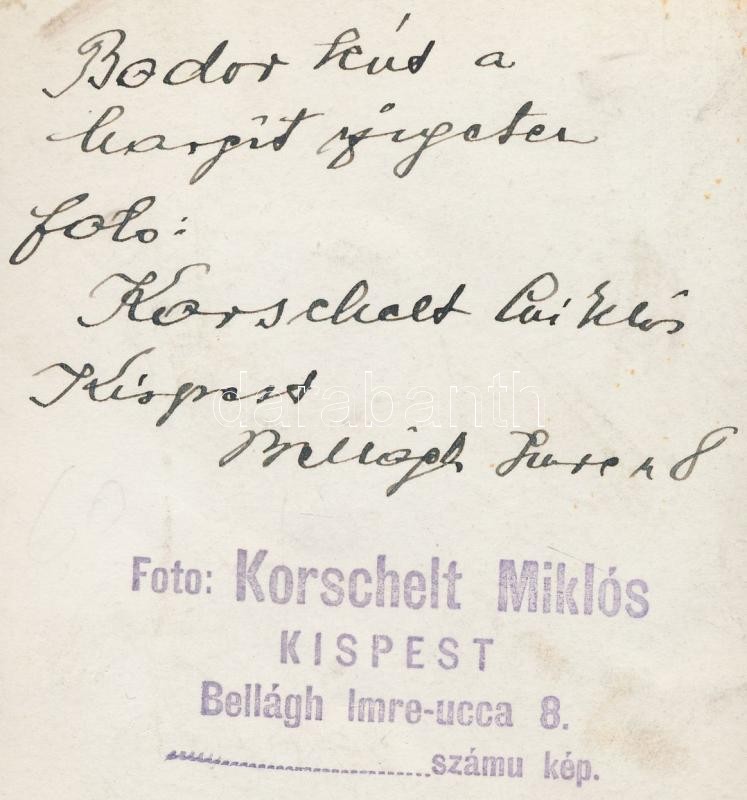 Bodor kút a
Margit szigeten
foto:
Korschelt Miklós
Kispest
Bellágh Imre u 8
darabanth
Foto: Korschelt Miklós
KISPEST
Bellágh Imre-ucca 8.
számu kép.